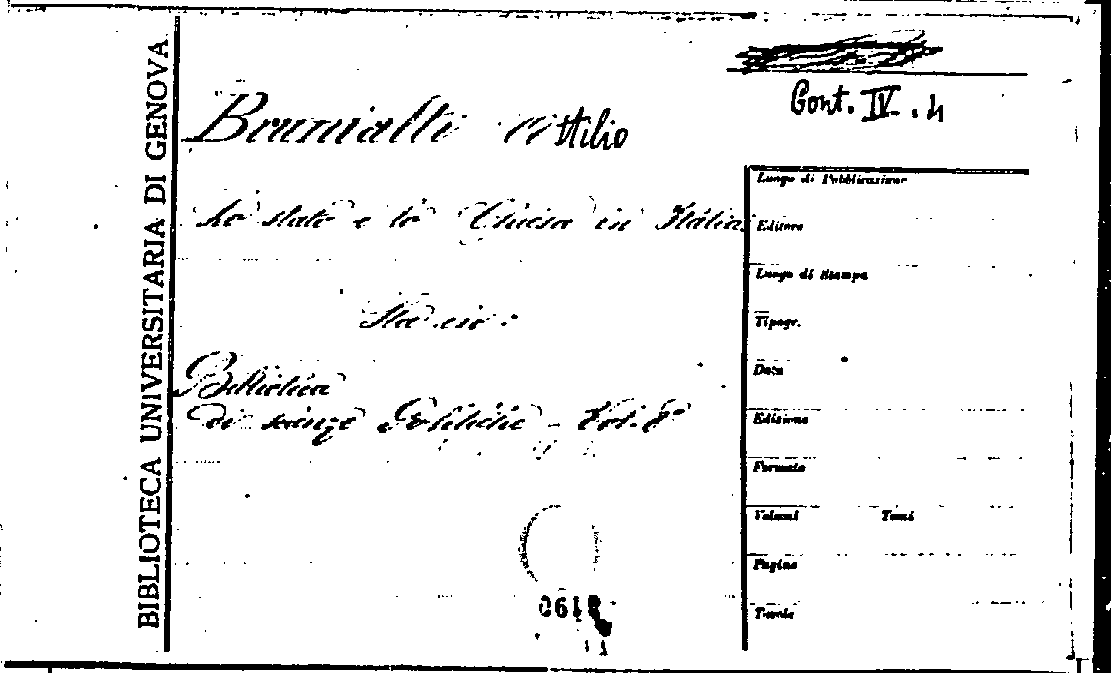 BIBLIOTECA UNIVERSITARIA DI GENOVA
Cont. IV. 4
Brunialti Attilio
Lo stato e la Chiesa in Italia.
Sta in:
Biblioteca
di scienze Politiche - Vol. 8°
Luogo di Pubblicazione
Editore
Luogo di Stampa
Tipogr.
Data
Edizione
Formato
Volumi Tomi
Pagine
Tavole